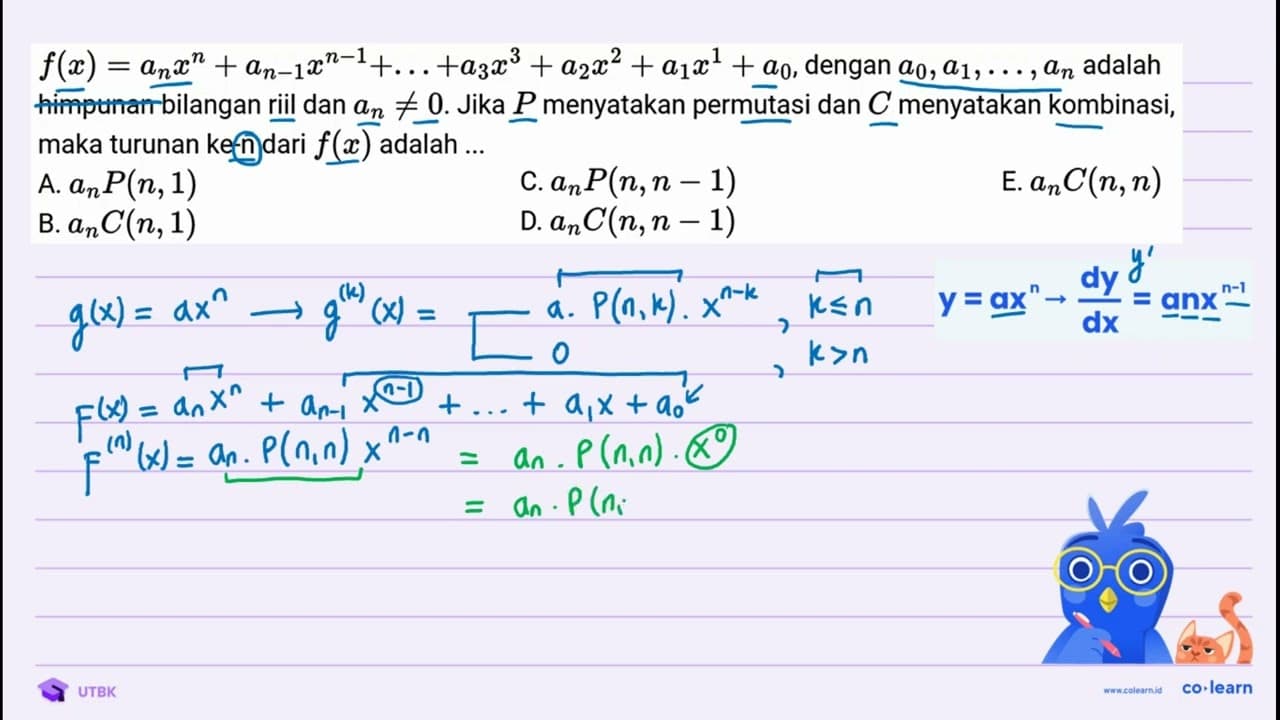 f(x) = aₙxⁿ + aₙ₋₁xⁿ⁻¹+...+a₃x³ + a₂x² + a₁x¹ + a₀, dengan a₀, a₁, ..., aₙ adalah
himpunan bilangan riil dan aₙ ≠ 0. Jika P menyatakan permutasi dan C menyatakan kombinasi,
maka turunan ke-n dari f(x) adalah ...
A. aₙP(n, 1) C. aₙP(n, n − 1) E. aₙC(n, n)
B. aₙC(n, 1) D. aₙC(n, n − 1)
g(x) = axⁿ → g⁽ᵏ⁾(x) = a. P(n,k). xⁿ⁻ᵏ , k ≤ n
0 , k > n
y = axⁿ → dy/dx = anxⁿ⁻¹
y'
F(x) = aₙxⁿ + aₙ₋₁ xⁿ⁻¹ + ... + a₁x + a₀
F⁽ⁿ⁾(x) = aₙ. P(n,n) xⁿ⁻ⁿ = aₙ . P(n,n) . x⁰
= aₙ . P(n,
UTBK
www.colearn.id co·learn